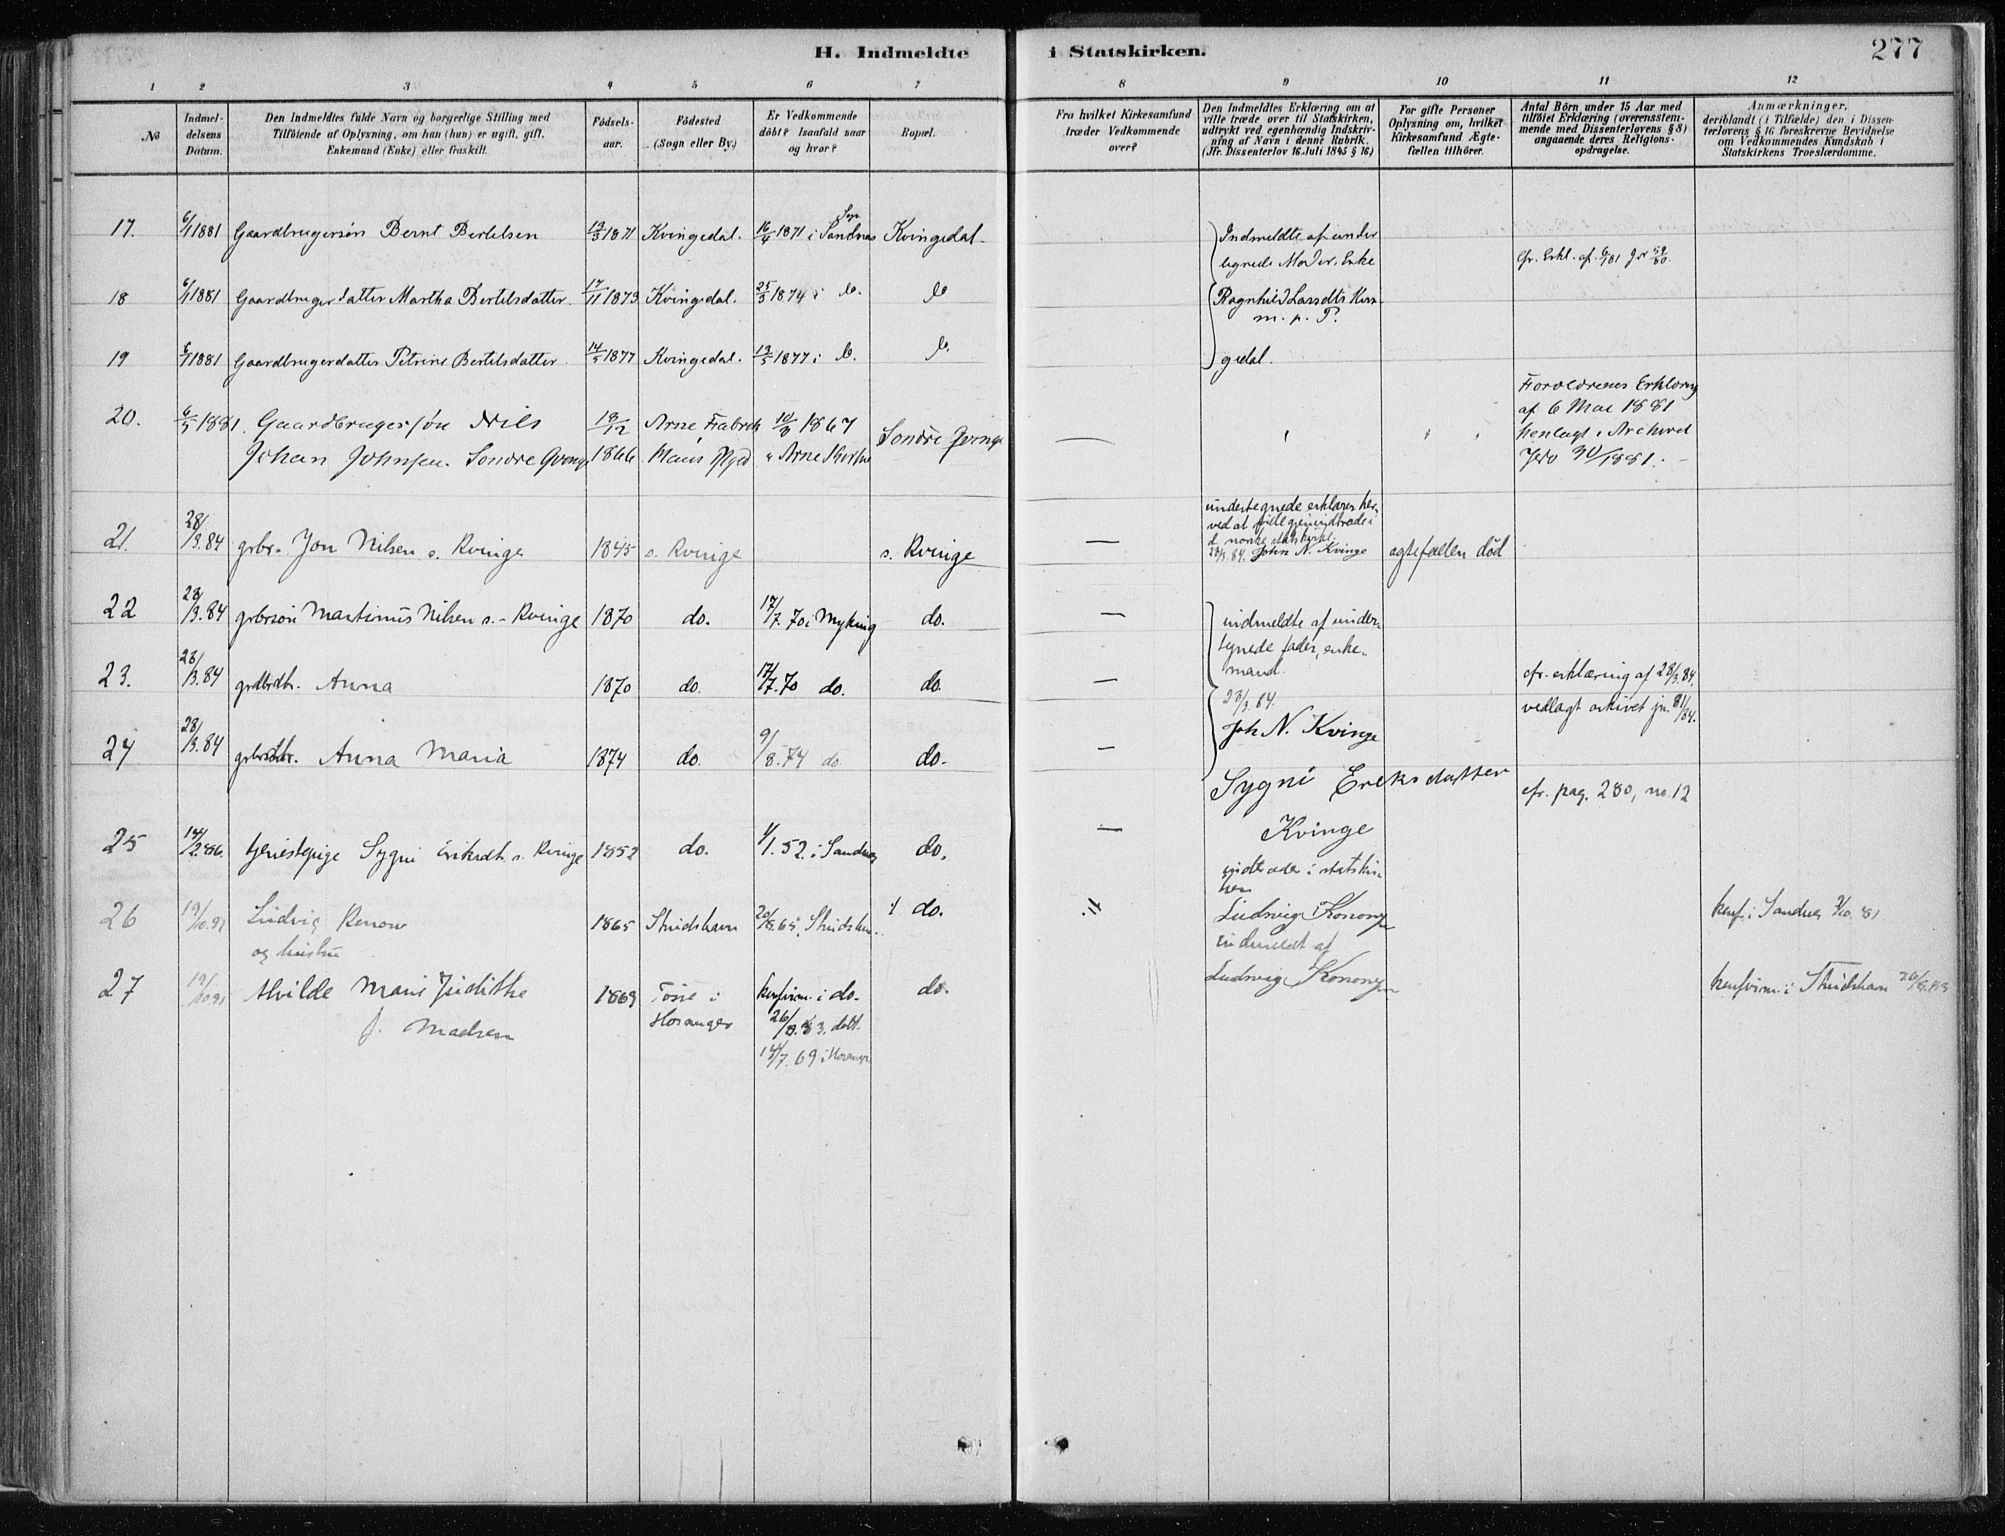 H. Indmeldte i Statskirken.
277
1 2 3 4 5 6 7 8 9 10 11 12
No
Indmel-
delsens
Datum.
Den Indmeldtes fulde Navn og borgerlige Stilling med
Tilföiende af Oplysning, om han (hun) er ugift, gift,
Enkemand (Enke) eller fraskilt.
Födsels-
aar.
Födested
(Sogn eller By.)
Er Vedkommende
döbt? Isaafald naar
og hvor?
Bopæl.
Fra hvilket Kirkesamfund
træder Vedkommende
over?
Den Indmeldtes Erklæring om at
ville træde over til Statskirken,
udtrykt ved egenhændig Indskriv-
ning af Navn i denne Rubrik.
(Jfr. Dissenterlov 16. Juli 1845 § 16)
For gifte Personer
Oplysning om, hvilket
Kirkesamfund Ægte-
fællen tilhörer.
Antal Börn under 15 Aar med
tilföiet Erklæring (overensstem-
mende med Dissenterlovens § 8)
angaaende deres Religions-
opdragelse.
Anmærkninger,
deriblandt (i Tilfælde) den i Dissen-
terlovens § 16 foreskrevne Bevidnelse
om Vedkommendes Kundskab i
Statskirkens Troeslærdomme.
17. 6/1 1881 Gaardbrugersøn Bernt Bertelsen 12/3 1871 Kvingedal. 16/4 1871 i Sandnæs Kvingedal.
Indmeldte af under
tegnede Moder, Enke
cfr. Erkl. af 6/1 81 Jr 59/80.
18 6/1 1881 Gaardbrugerdatter Martha Bertelsdatter. 17/11 1873 Kvingedal. 25/3 1874 i do. do
Ragnhild Larsdtr Kvin-
m. p. P.
19 6/1 1881 Gaardbrugerdatter Petrine Bertelsdatter. 14/5 1877 Kvingedal. 19/5 1877 i do. do.
gedal.
20. 6/5 1881. Gaardbrugersøn Nils 18/12 Arne Fabrik 10/3 1867 Søndre Qvinge
Johan Johnsen. Søndre Qvinge 1866 Haus Pgd " Arne Kirke
Forældrenes Erklæring
af 6 Mai 1881
henlagt i Archivet
21. 28/3.84 grbr. Jon Nilsen s. Kvinge 1845 s. Kvinge s. Kvinge
undertegnede erklærer her-
ved at ville gjenindtræde i
d. norske statskirke.
28/3.84. John N. Kvinge
ægtefællen död
22 28/3.84 grbrsön Martinus Nilsen s. Kvinge 1870 do. 17/7.70 i Myking do.
indmeldte af under-
tegnede fader, enke-
mand.
23. 28/3.84 grdbrdtr. Anna 1870 do. 17/7.70 do. do.
28/3.84.
Joh N. Kvinge
cfr. erklæring af 28/3.84,
vedlagt arkivet jn. 81/84.
24 28/3.84 grbrdtr. Anna Maria 1874 do. 9/8.74 do. do.
Sygni Eriksdatter
Kvinge
cfr. pag. 280, no. 12
25 14/2.86. tjenestepige Sygni Eriksdt. s. Kvinge 1852 do. 1/1.52. i Sandnes do.
indtræder i statskir-
ken
26 19/10.91 Ludvig Konow 1865 Skudshavn 20/8.65, Skudshavn. do.
og hustru
Ludvig Konow
indmeldt af
konf. i Sandnes 2/10.81.
27 19/10 91 Alvilde Marie Judithe 1869 Fosse i konfirm. i do. do.
f. Madsen Hosanger 26/8.83. döbt.
14/7.69 i Hosanger
Ludvig Konow
konfirm. i Skudshavn 26/8.83